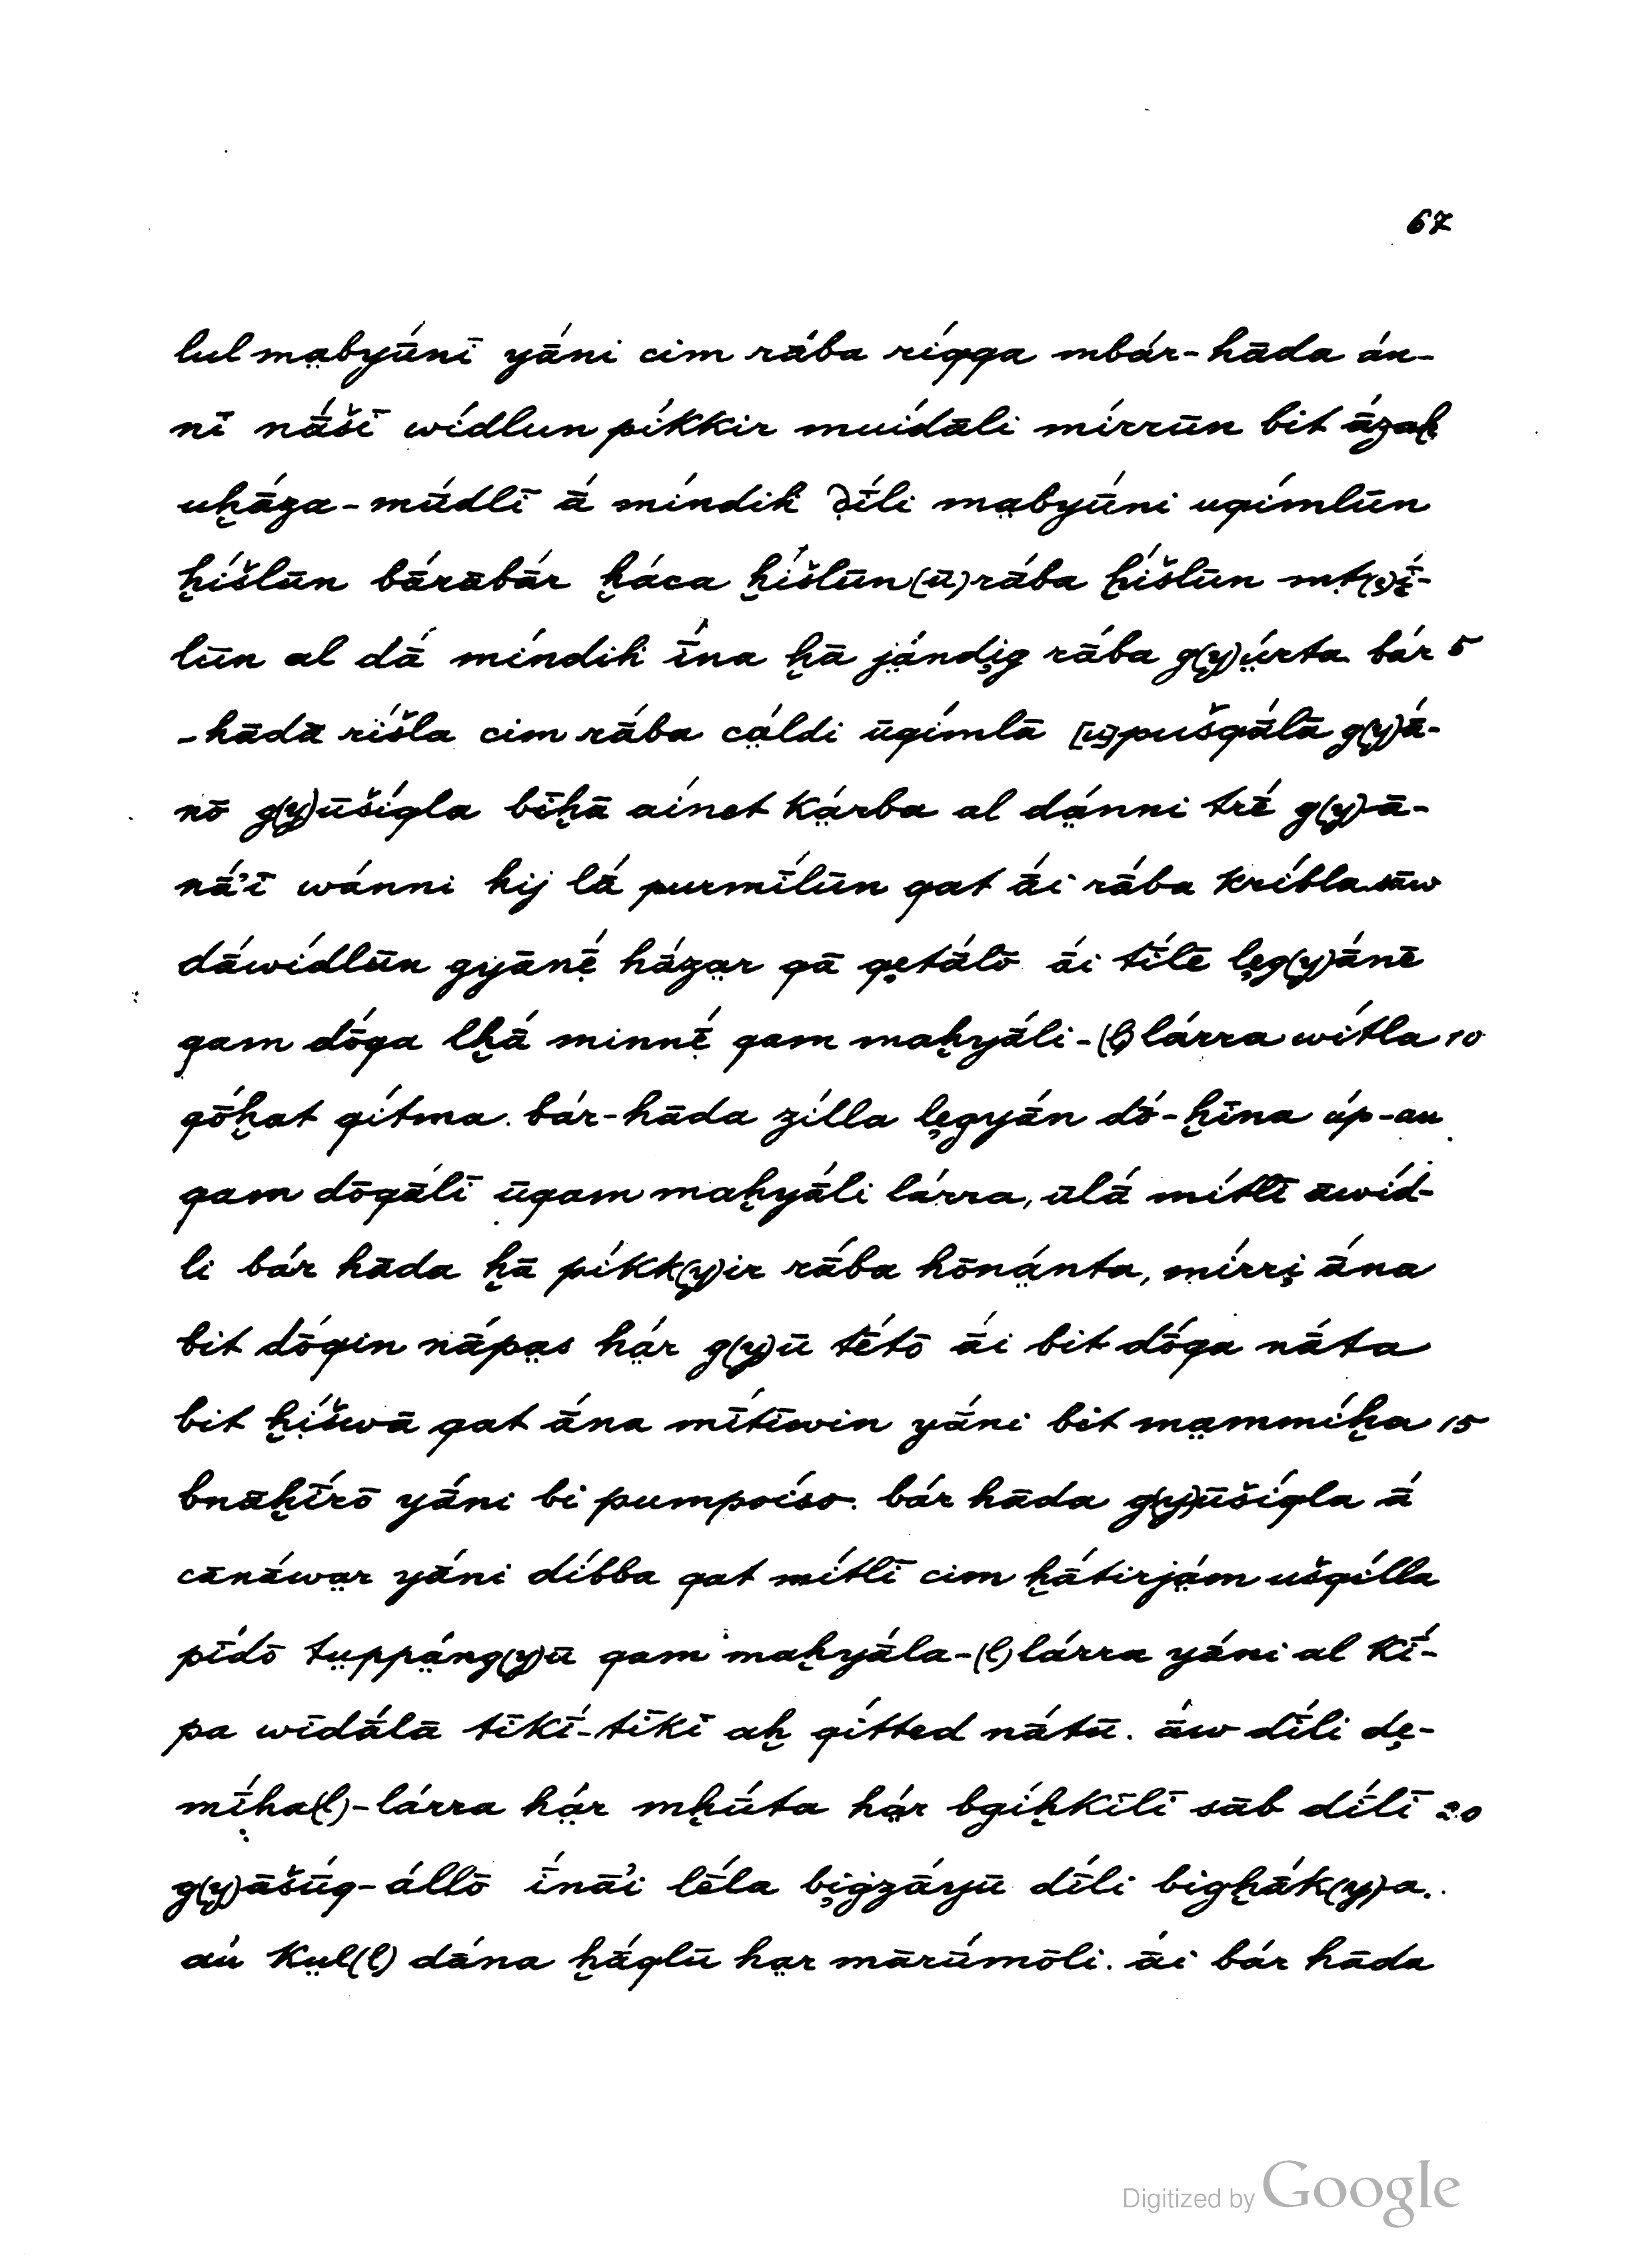 67
lul ma̤byū́nī yā́ni cim rā́ba ríqqa mbár-hāda án-
nī nā́šī wídlun píkkir muídāli mírrūn bit ā́zaḫ
uḫā́za-mū́dlī ā́ míndiḫ dī́li ma̤byū́ni uqímlūn
ḫíšlūn bā́rābār ḫáca ḫíšlūn(ū) rā́ba ḫíšlūn
lūn al dā́ míndiḫ ī́na ḫā já̤ndi̧g rā́ba g(y)ṳ́rta bár 5
-hādā ríšla cim rā́ba cá̤ldi ūqímlā pušqā́lā g(y)ā́-
nō g(y)ūšíqla bīḫā aínet ká̤rba al dá̤nni trḗ g(y)ā-
nā́'ī wánni hij lā́ purmī́lūn qat ā́i rā́ba kríbla sāw
dā́wídlūn gyānḗ házа̤r qā qe̤tā́lō ā́i tī́lē le̤g(y)ā́nē
qam dṓqa lḫā́ minnḗ qam maḫyā́li-(l) lárra wítla 10
qṓḫat qítma. bár-hāda zílla le̤gyā́n dō-ḫī́na úp-au
qam dōqā́lī ūqam maḫyā́li lárra, ūlā́ mítlī āwíd-
li bár hāda ḫā píkk(y)ir rā́ba hōná̤nta, mírri̧ ā́na
bit dṓqin nā́pa̤s há̤r g(y)ū tḗtō ā́i bit dṓqa nā́ta
bit ḫíšwā qat ā́na mī́tīwin yā́ni bit ma̤mmíḫa 15
bnāḫī́rō yā́ni bi pumpoíso. bár hāda g(y)ūšíqla ā́
cānā́wa̤r yā́ni díbba qat mítlī cim ḫā́tirjá̤m ušqílla
pídō tṳppá̤ng(y)ū qam maḫyā́la-(l) lárra yā́ni al kī́-
pa wīdā́lā tīkī́-tīkī aḫ qítted nā́tū. ā́w dī́li de̤-
mī́ha(l)-lárra há̤r mḫū́ta há̤r bgíḫkīlī sāb dī́lī 20
g(y)āšū́q-állō ī́nā'i lḗla bi̧gzā́yū dī́li bigḫā́k(y)a.
aú kṳl(l) dā́na ḫā́qlū ha̤r mārū́mōli. ā́i bár hāda
Digitized by Google